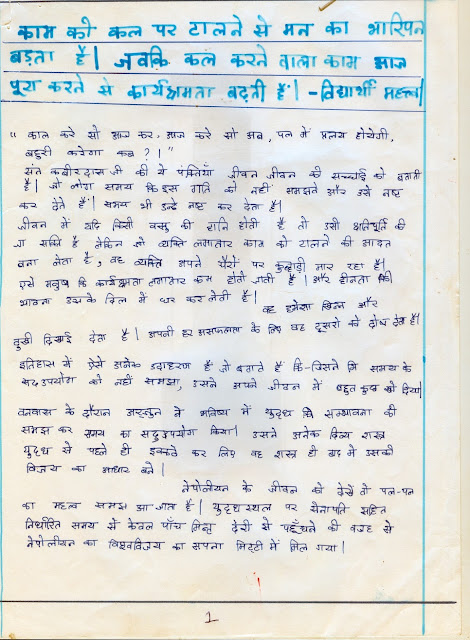 काम को कल पर टालने से मन का भारिपन
बडता है। जबकि कल करने वाला काम आज
पूरा करने से कार्यक्षमता बढ़ती हैं। - विद्यार्थी महत्त्व।
“ काल करे सो आज कर, आज करे सो अब, पल में प्रलय होयेगी,
बहुरी करेगा कब ?। ”
संत कबीरदास जी की ये पंक्तियाँ जीवन जीवन की सच्चाई को बताती
है। जो लोग समय कि इस गति को नहीं समझते और उसे नष्ट
कर देते हैं। समय भी उन्हे नष्ट कर देता है।
जीवन में यदि किसी वस्तु की हानि होती है तो उसी क्षतिपूर्ति की
जा सकति है लेकिन जो व्यक्ति लगातार काम को टालने की आदत
बना लेता है, वह व्यक्ति अपने पैरों पर कुल्हाड़ी मार रहा है।
ऐसे मनुष्य कि कार्यक्षमता लगातार कम होती जाती है। और हीनता की
भावना उसके दिल में घर कर लेती है। वह हमेशा खिन्न और
दुखी दिखाई देता है। अपनी हर असफलता के लिए वह दूसरों को दोष देता है।
इतिहास में ऐसे अनेक उदाहरण है जो बताते हैं कि-जिसने भी समय के
सदउपयोग को नहीं समझा, उसने अपने जीवन में बहुत कुछ खो दिया।
वनवास के दौरान अर्जुन ने भविष्य में युद्ध कि सम्भावना को
समझ कर समय का सदुउपयोग किया। उसने अनेक दिव्य शस्त्र
युद्ध से पहले ही इकठ्ठे कर लिए वह शस्त्र ही बाद में उसकी
विजय का आधार बने।
नेपोलीयन के जीवन को देखें तो पल-पल
का महत्व समझ आ जाता है। युद्धस्थल पर सेनापति सहित
निर्धारित समय से केवल पाँच मिनट देरी से पहुँचने की वजह से
नेपोलीयन का विश्वविजय का सपना मिट्टी में मिल गया।
1